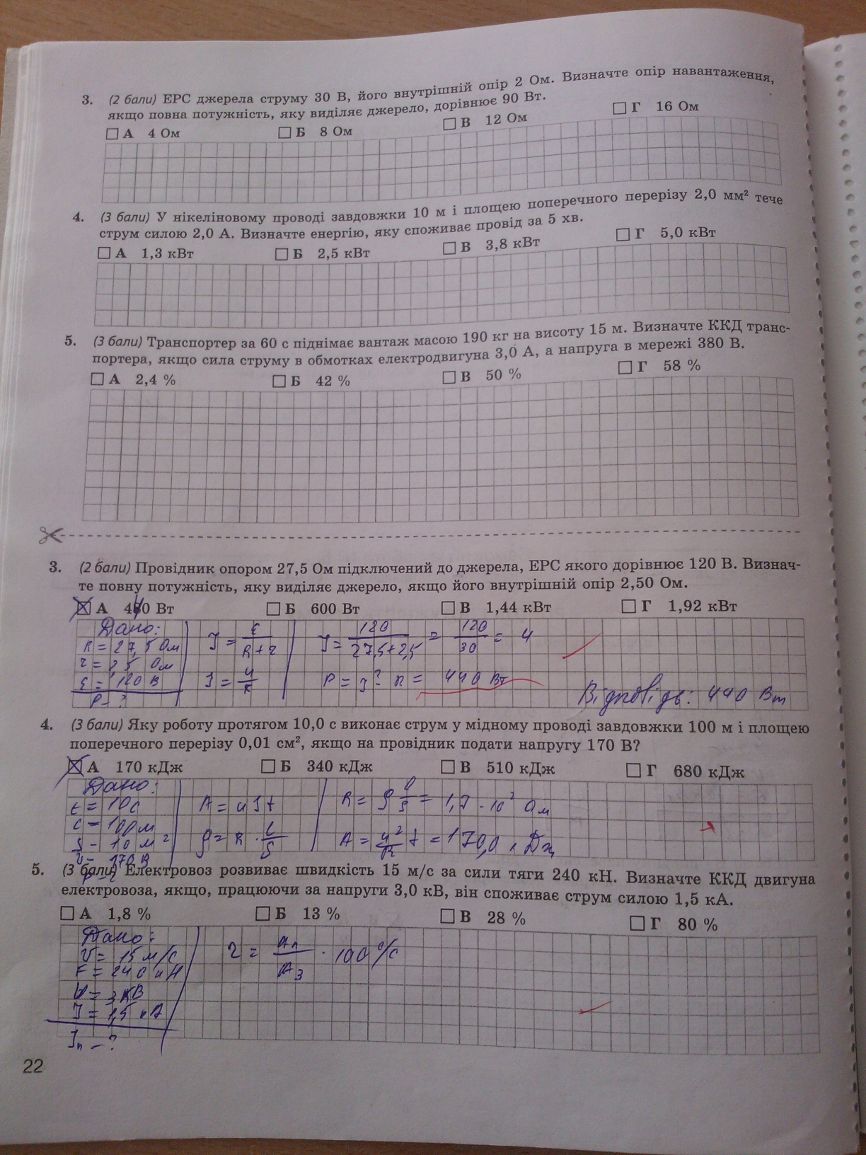 3. (2 бали) ЕРС джерела струму 30 В, його внутрішній опір 2 Ом. Визначте опір навантаження,
якщо повна потужність, яку виділяє джерело, дорівнює 90 Вт.
А 4 Ом Б 8 Ом В 12 Ом Г 16 Ом
4. (3 бали) У нікеліновому проводі завдовжки 10 м і площею поперечного перерізу 2,0 мм² тече
струм силою 2,0 А. Визначте енергію, яку споживає провід за 5 хв.
А 1,3 кВт Б 2,5 кВт В 3,8 кВт Г 5,0 кВт
5. (3 бали) Транспортер за 60 с піднімає вантаж масою 190 кг на висоту 15 м. Визначте ККД транс-
портера, якщо сила струму в обмотках електродвигуна 3,0 А, а напруга в мережі 380 В.
А 2,4 % Б 42 % В 50 % Г 58 %
3. (2 бали) Провідник опором 27,5 Ом підключений до джерела, ЕРС якого дорівнює 120 В. Визнач-
те повну потужність, яку виділяє джерело, якщо його внутрішній опір 2,50 Ом.
А Вт Б 600 Вт В 1,44 кВт Г 1,92 кВт
Дано:
R = 27,5 Ом
r = 2,5 Ом
ε = 120 В
P - ?
I = ε/(R+r)
I = U/R
I = 120/(27,5+2,5) = 120/30 = 4
P = I² R = 440 Вт
Відповідь: 440 Вт
4. (3 бали) Яку роботу протягом 10,0 с виконає струм у мідному проводі завдовжки 100 м і площею
поперечного перерізу 0,01 см², якщо на провідник подати напругу 170 В?
А 170 кДж Б 340 кДж В 510 кДж Г 680 кДж
Дано:
t = 10с
l = 100м
U = 170 В
A = UIt
ρ = R · l/S
A = U²/R t = 170,0 к Дж
5. (3 бали) Електровоз розвиває швидкість 15 м/с за сили тяги 240 кН. Визначте ККД двигуна
електровоза, якщо, працюючи за напруги 3,0 кВ, він споживає струм силою 1,5 кА.
А 1,8 % Б 13 % В 28 % Г 80 %
Дано:
V = 15 м/с
F = 240 кН
U = 3 кВ
I = 1,5 кА
22